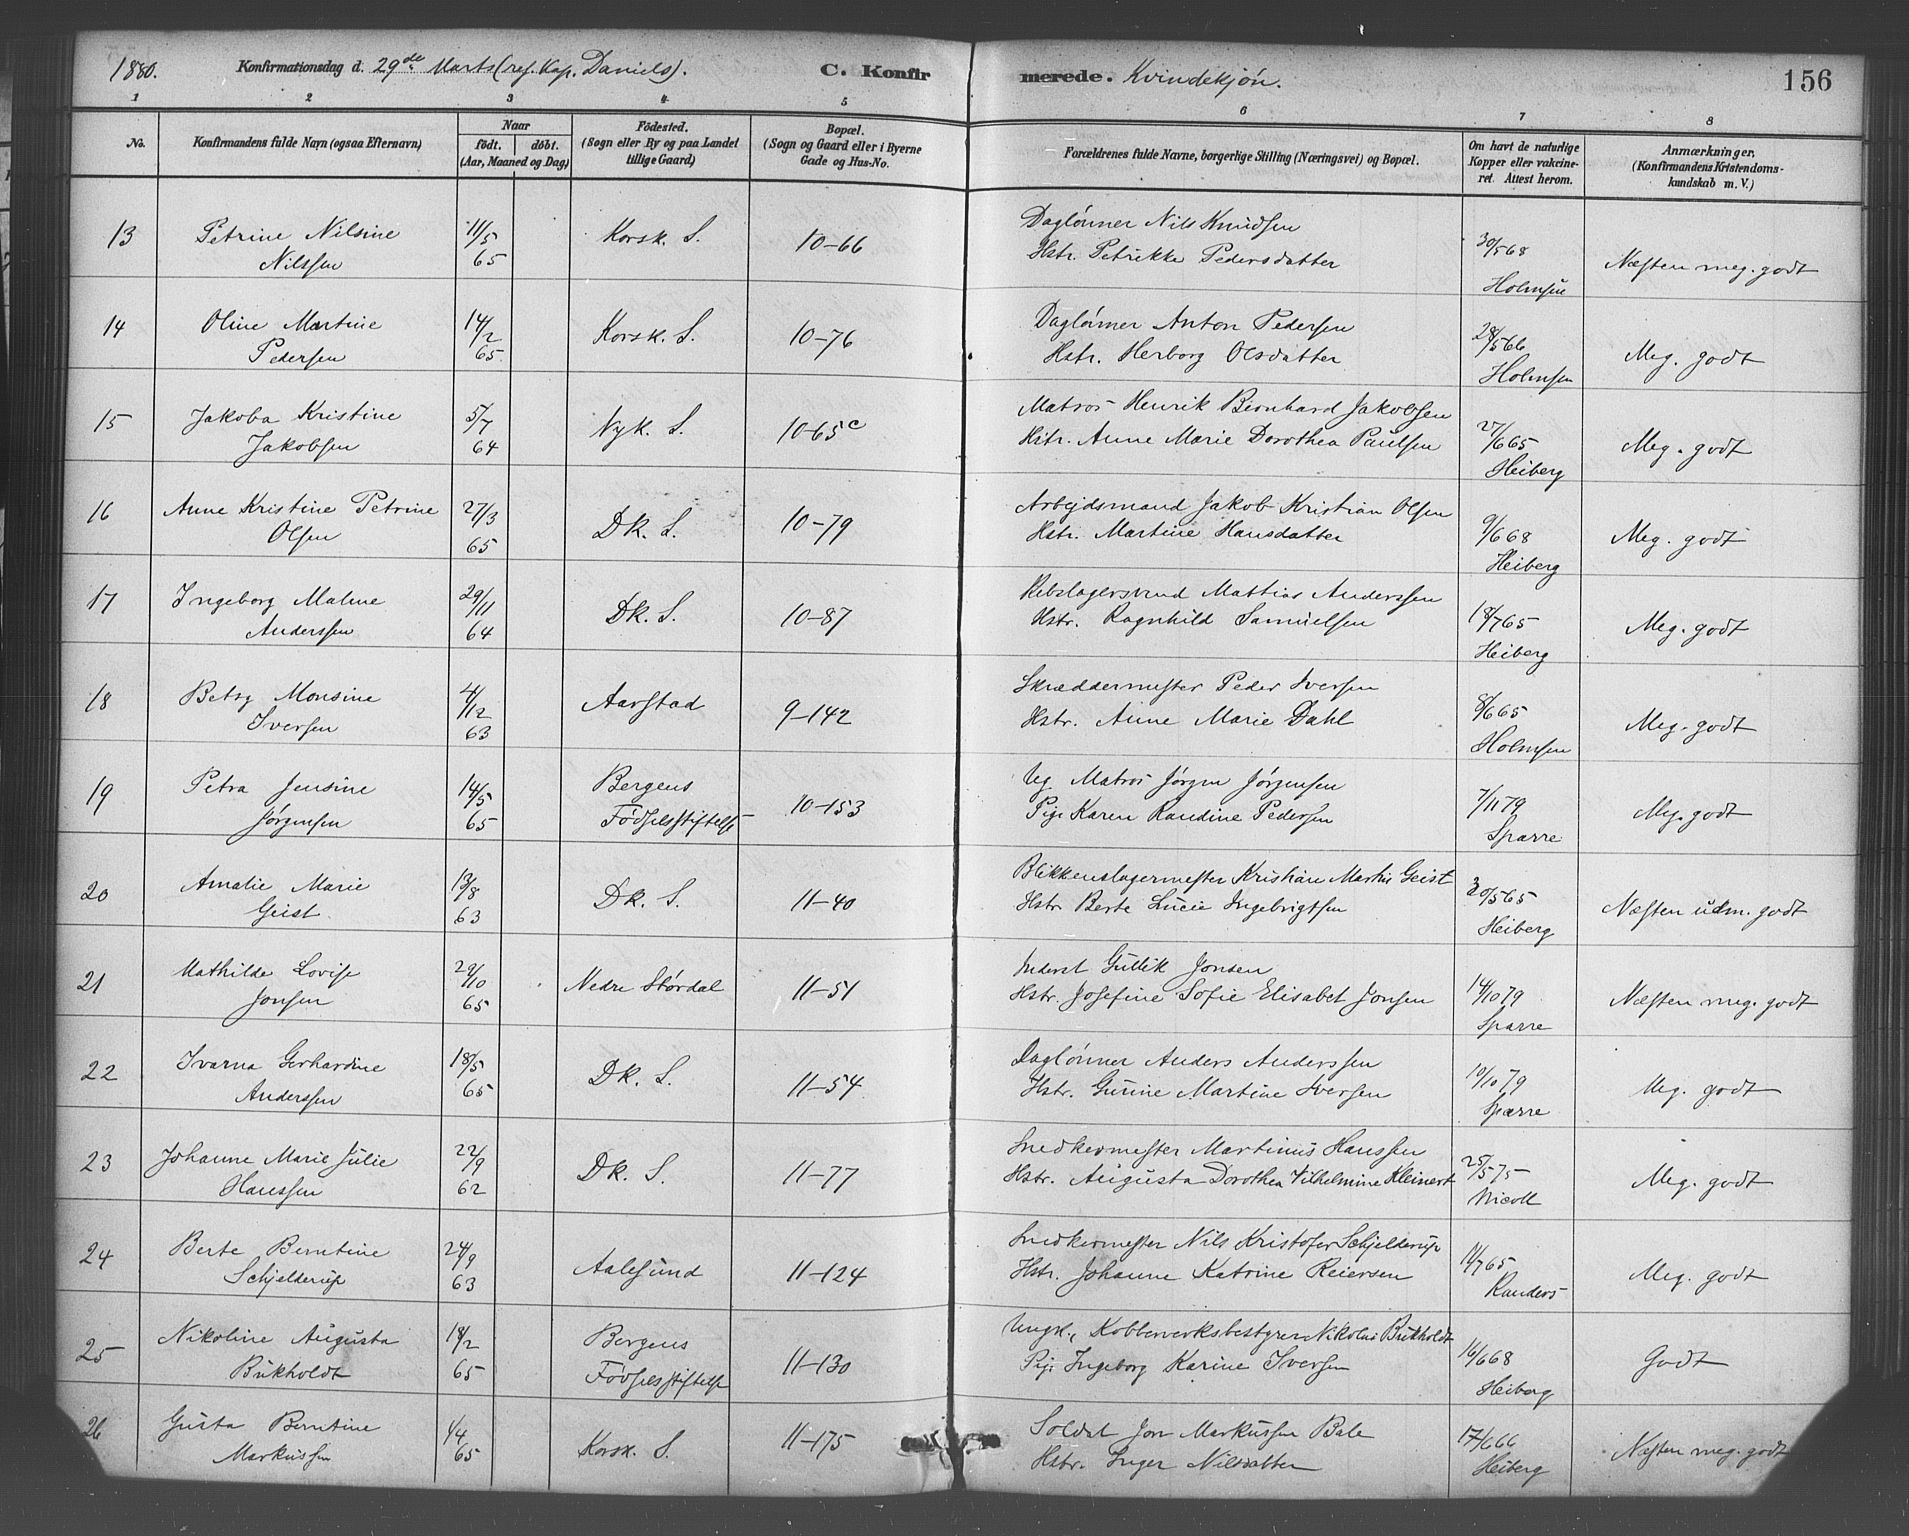 1880. Konfirmationsdag d. 29de Marts (res. Kap. Daniels). C. Konfirmerede. Kvindekjøn. 156
1 2 3 4 5 6 7 8
No. Konfirmandens fulde Navn (ogsaa Efternavn) Naar født. døbt. (Aar, Maaned og Dag) Fødested. (Sogn eller By og paa Landet tillige Gaard) Bopæl. (Sogn og Gaard eller i Byerne Gade og Hus-No. Forældrenes fulde Navne, borgerlige Stilling (Næringsvei) og Bopæl. Om havt de naturlige Kopper eller vakcineret. Attest herom. Anmærkninger, (Konfirmandens Kristendomskundskab m. V.)
13 Petrine Nilsine 11/5 Korsk. S. 10-66 Daglønner Nils Knudsen 30/5 68
Nilssen 65 Hstr. Petrikke Pedersdatter Holmsen Næsten meg. godt
14 Oline Martine 14/2 Korsk. S. 10-76 Daglønner Anton Pedersen 28/5 66
Pedersen 65. Hstr. Herborg Olsdatter Holmsen Meg. godt
15 Jakoba Kristine 5/7 Nyk. S. 10-65c Matros Henrik Bernhard Jakobsen 27/6 65
Jakobsen 64 Hstr. Anne Marie Dorothea Paulsen Heiberg Meg. godt
16 Anne Kristine Petrine 27/3 Dk. S. 10-79 Arbejdsmand Jakob Kristian Olsen 9/6 68
Olsen 65 Hstr. Martine Hansdatter Heiberg Meg. godt
17 Ingeborg Malene 29/11 Dk. S. 10-87 Rebslagersvend Mattias Anderssen 18/7 65
Anderssen 64 Hstr. Ragnhild Samuelsen Heiberg Meg. godt
18 Betsy Monsine 4/12 Aarstad 9-142 Skræddermester Peder Iversen 8/6 65
Iversen 63 Hstr. Anne Marie Dahl Holmsen Meg. godt
19 Petra Jensine 14/5 Bergens 10-153 Ug Matros Jørgen Jørgensen 7/11 79
Jørgensen 65 Fødselsstiftelse Pige Karen Randine Pedersen Sparre Meg. godt
20 Amalie Marie 13/8 Dk. S. 11-40 Blikkenslagermester Kristian Martin Geist 30/5 65
Geist. 63 Hstr. Berte Lucie Ingebrigtsen Heiberg Næsten udm. godt
21 Mathilde Lovise 29/10 Nedre Størdal 11-51 Inderst Gullik Jonsen 14/10 79
Jonsen 65 Hstr. Josefine Sofie Elisabet Jonsen Sparre Næsten meg. godt
22 Ivarna Gerhardine 18/5 Dk. S. 11-54 Daglønner Anders Anderssen 10/10 79
Anderssen 65 Hstr. Gurine Martine Iversen Sparre Meg. godt
23 Johanne Marie Julie 22/9 Dk. S. 11-77 Snedkermester Martinus Hanssen 25/5 75
Hanssen 62 Hstr. Augusta Dorothea Vilhelmine Kleinert Nicoll Meg. godt
24 Berte Berntine 24/9 Aalesund 11-124 Snedkermester Nils Kristofer Schjelderup 11/7 65
Schjelderup 63 Hstr. Johanne Katrine Reiersen Randers Meg. godt
25 Nikoline Augusta 18/2 Bergens 11-130 Ungk., Kobberverksbestyrer Nikolai Bukholdt 16/6 68
Bukholdt 65 Fødselsstiftelse Pige Ingeborg Karine Iversen Heiberg Godt
26 Gusta Berntine 1/4 Korsk. S. 11-175 Soldat Jon Markussen Bale 17/6 66
Markussen 65 Hstr. Inger Nilsdatter Heiberg Næsten meg. godt